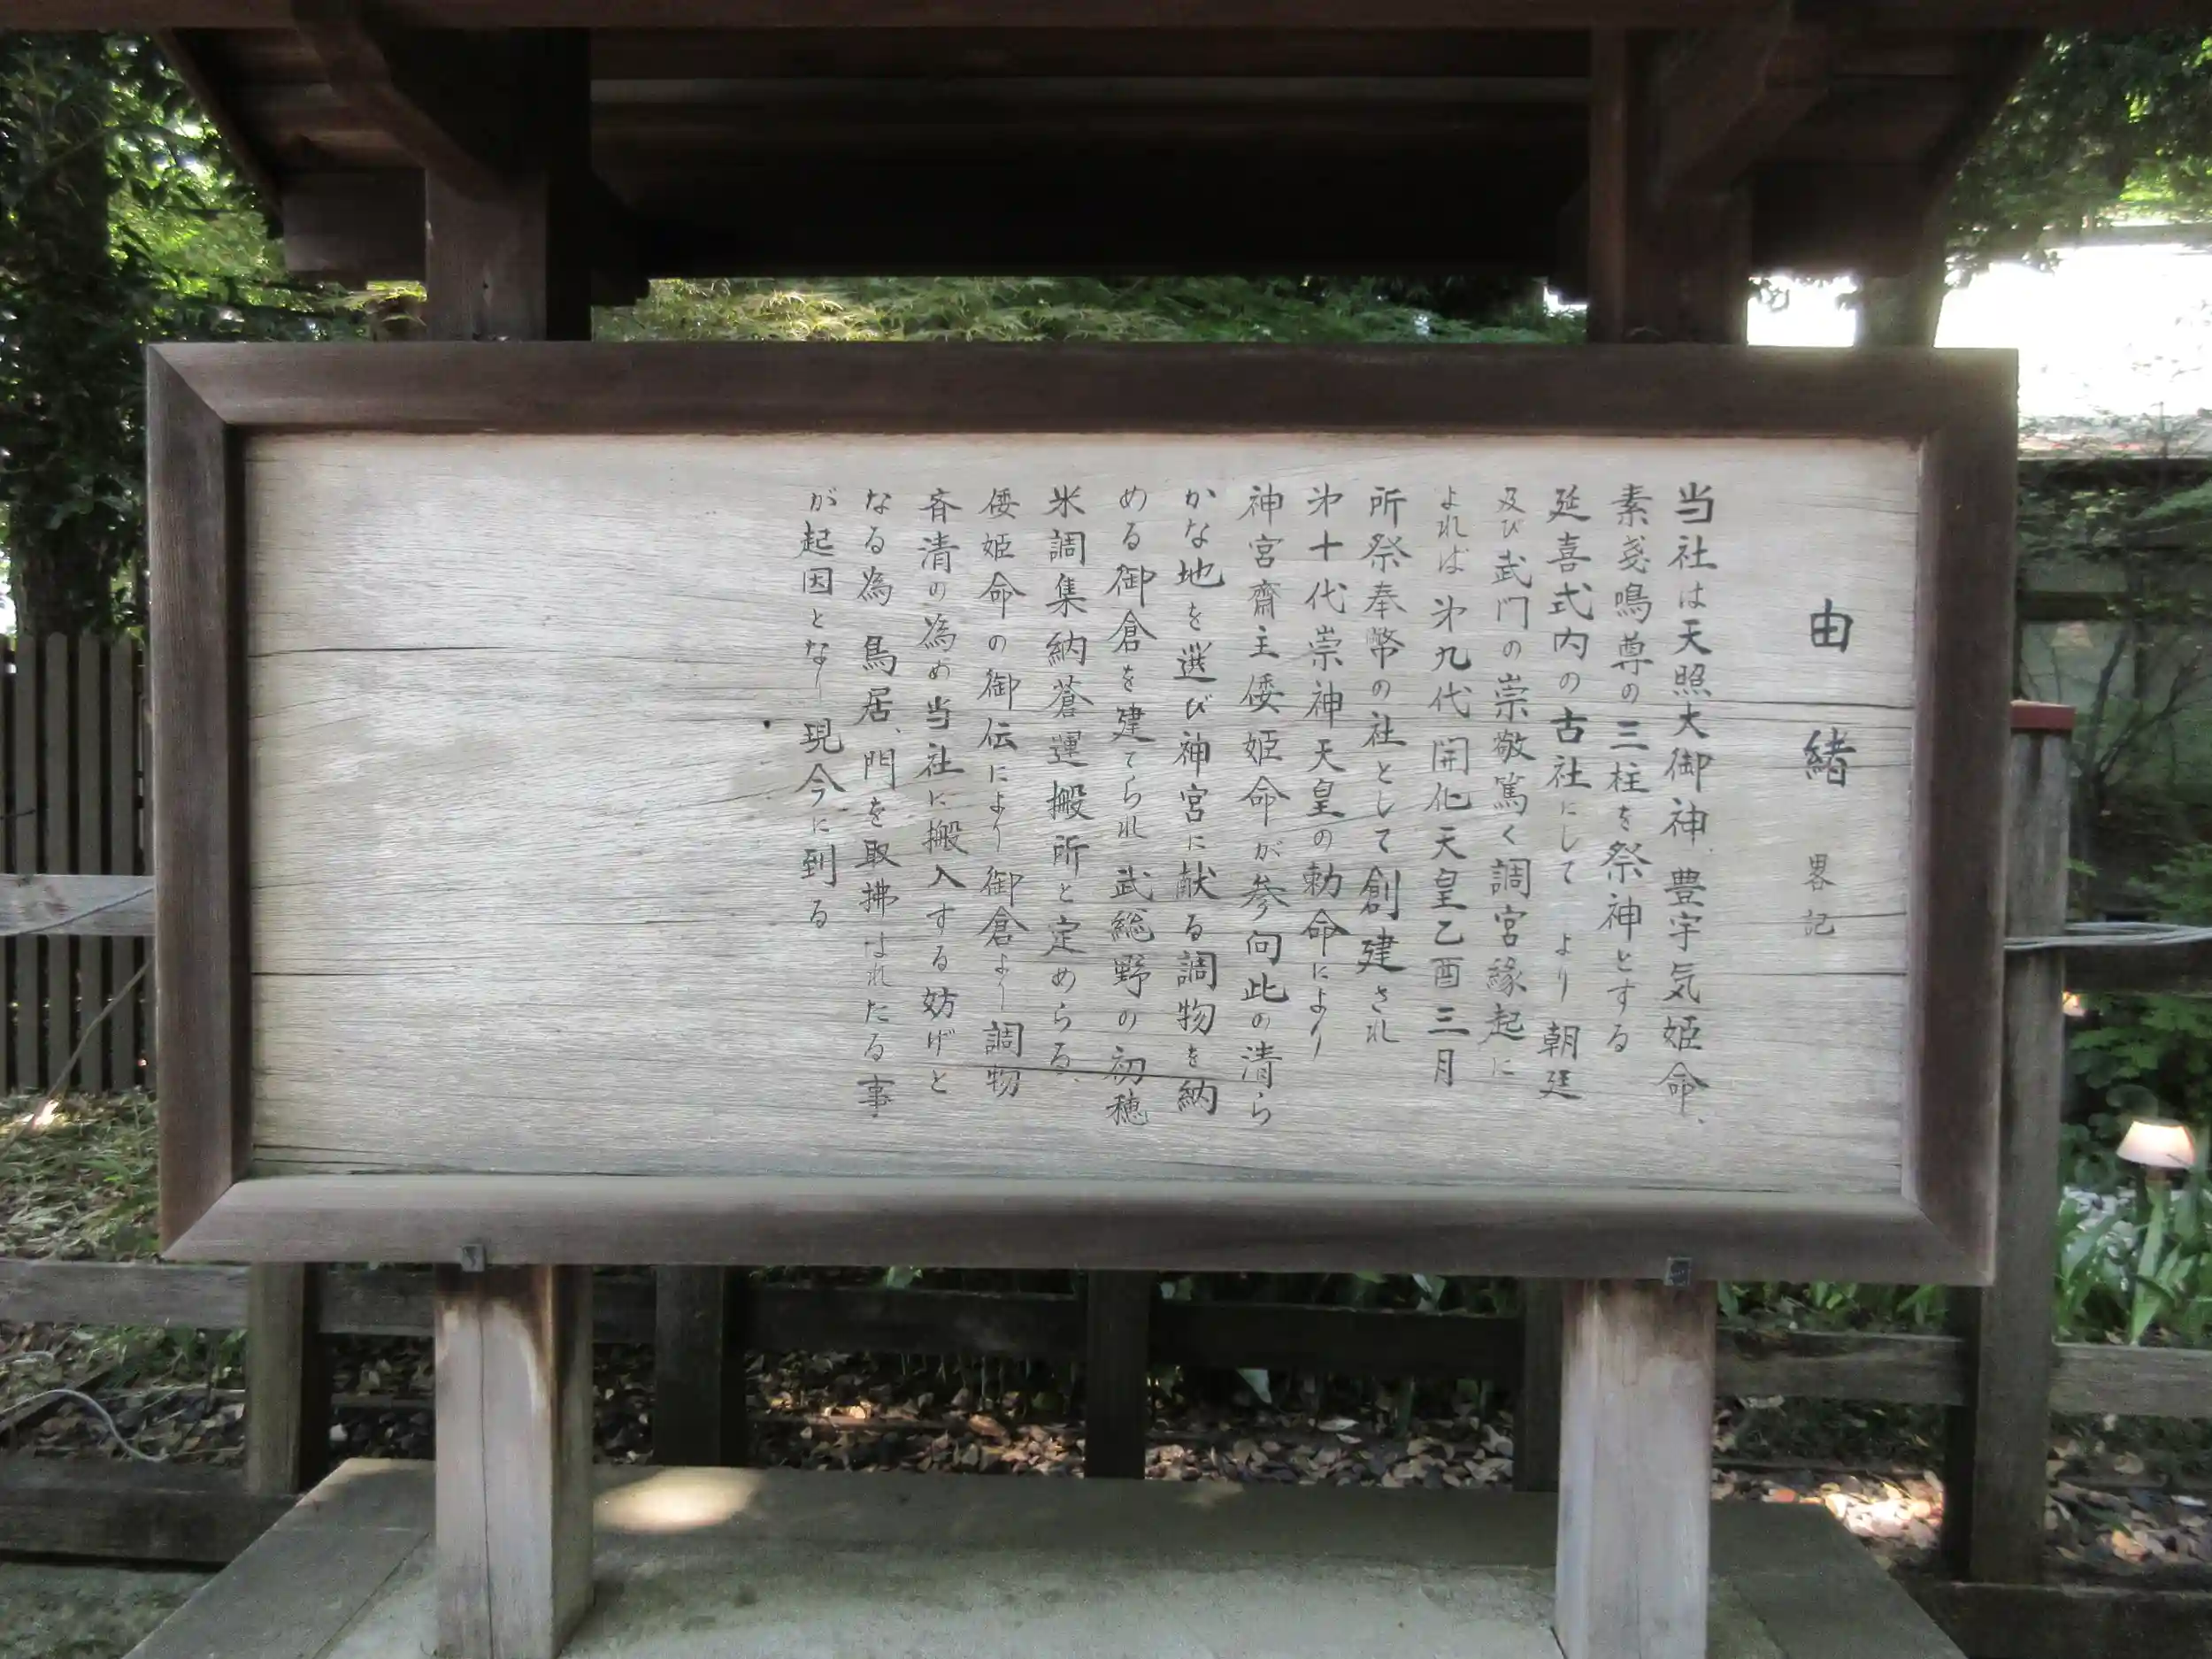 由緒 畧記
当社は天照大御神、豊宇気姫命、
素戔鳴尊の三柱を祭神とする
延喜式内の古社にして より 朝廷
及び武門の崇敬篤く調宮縁起に
よれば 㐧九代開化天皇乙酉三月
所祭奉幣の社として創建され
㐧十代崇神天皇の勅命により
神宮齋主倭姫命が参向此の清ら
かな地を選び神宮に献る調物を納
める御倉を建てられ 武総野の初穂
米調集納蒼運搬所と定めらる、
倭姫命の御伝により御倉より調物
斉清の為め当社に搬入する妨げと
なる為 鳥居、門を取拂はれたる事
が起因となり 現今に到る